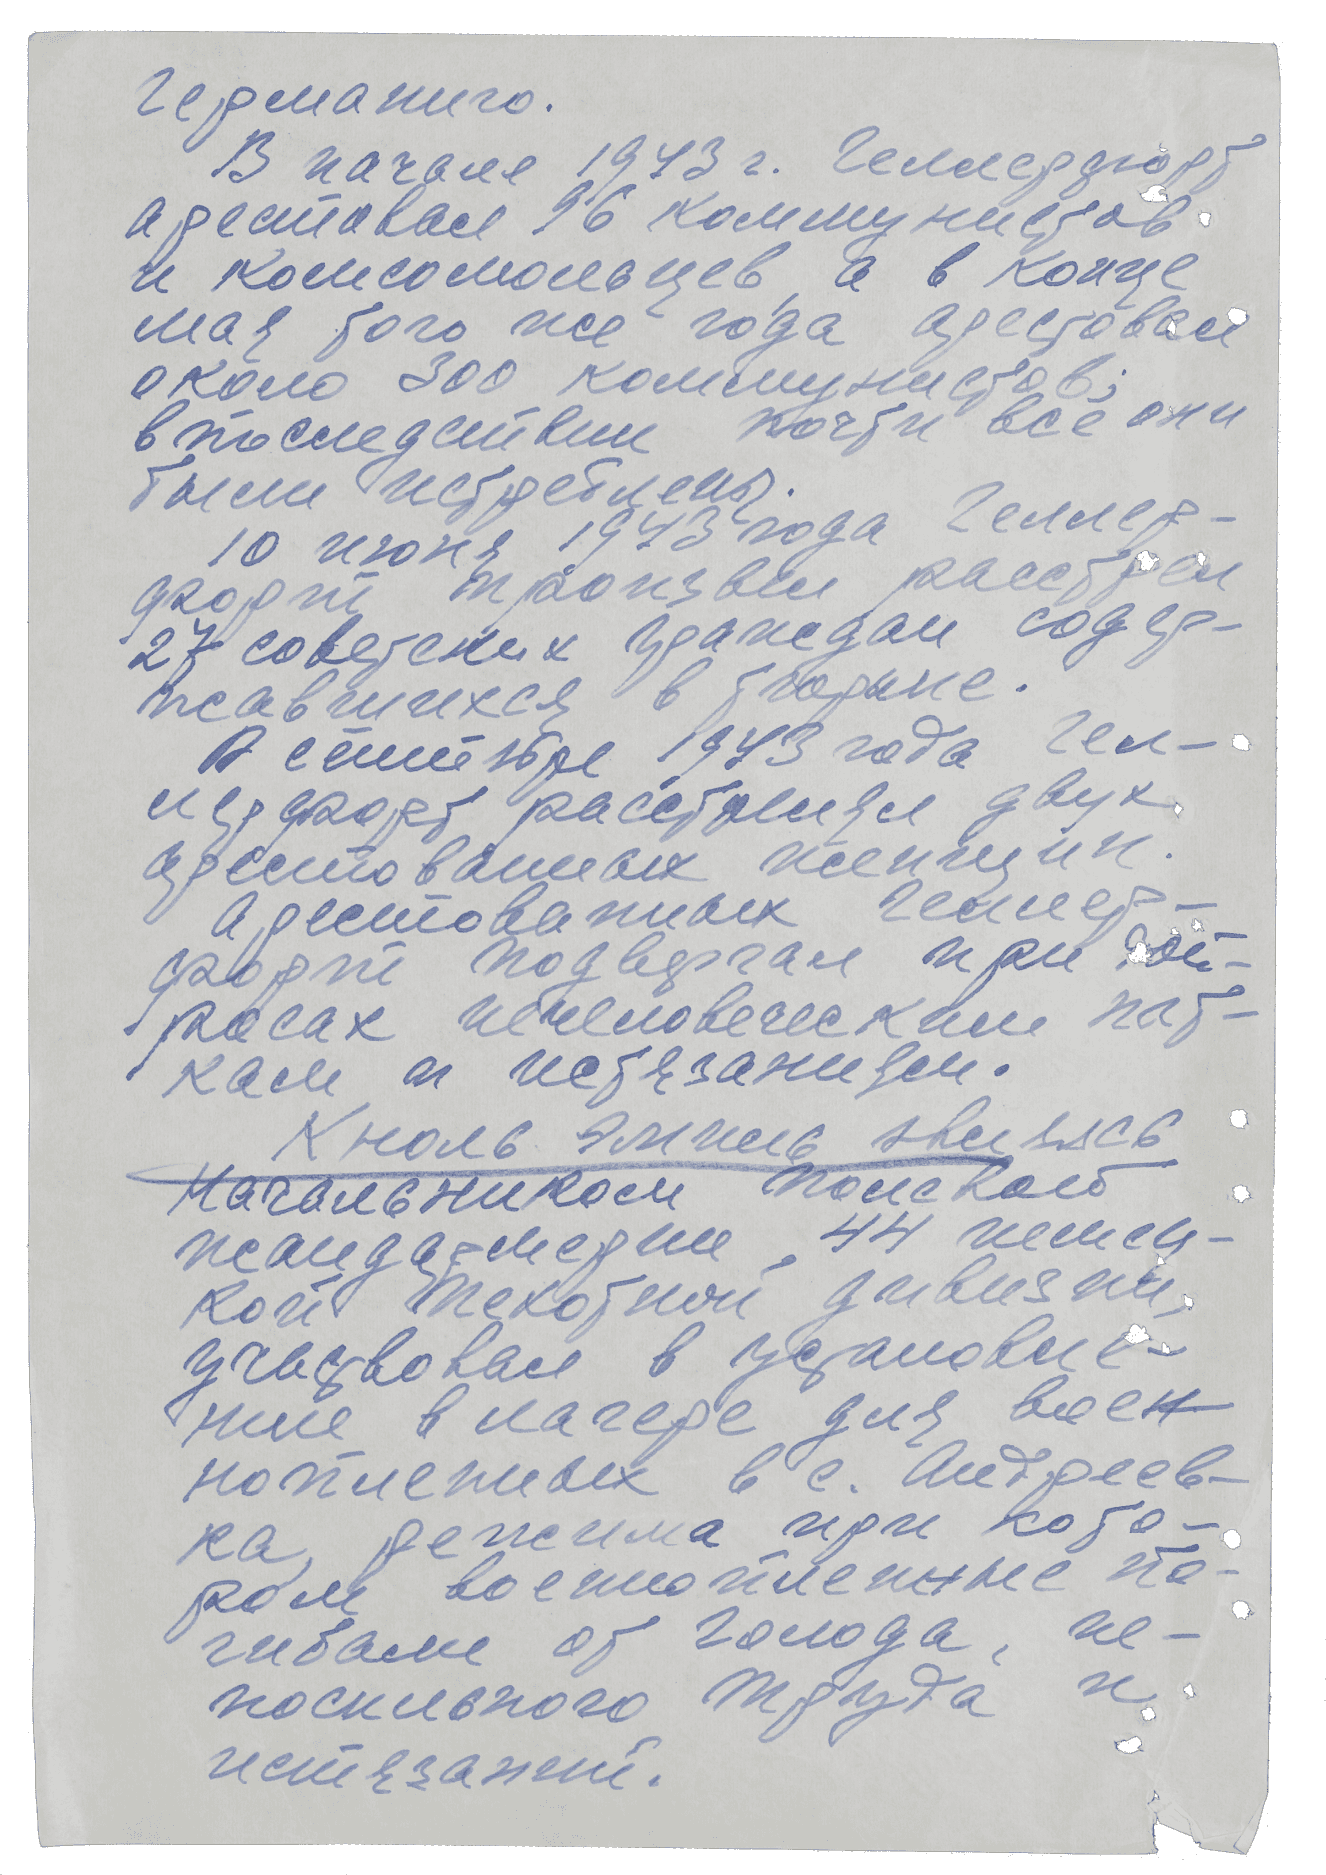 Германию.
В начале 1943 г. Геллерфорт
арестовал 96 коммунистов
и комсомольцев, а в конце
мая того же года арестовал
около 300 коммунистов;
впоследствии почти все они
были истреблены.
10 июня 1943 года Геллер-
форт произвел расстрел
27 советских граждан содер-
жавшихся в тюрьме.
В сентябре 1943 года Гел-
лерфорт расстрелял двух
арестованных женщин.
Арестованных Геллер-
форт подвергал при доп-
росах нечеловеческим пыт-
кам и истязаниям.
Кноль Эмиль являясь
начальником полевой
жандармерии 44 немец-
кой пехотной дивизии,
участвовал в установле-
нии в лагере для воен
нопленных в с. Андреев-
ка, режима при кото-
ром военнопленные по-
гибали от голода, не-
посильного труда и
истязаний.